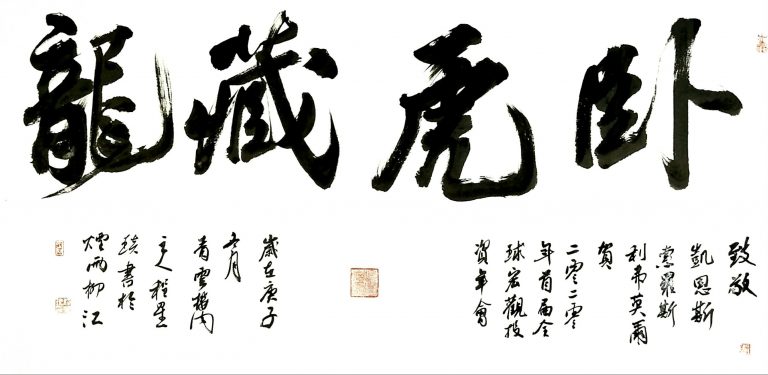 卧虎藏龍
致敬
凱恩斯
索羅斯
利弗莫爾
賀
二零二零
年首届全
球宏觀投
資年會
歲在庚子
五月
青雲樓
主人程星
書於
煙雨柳江